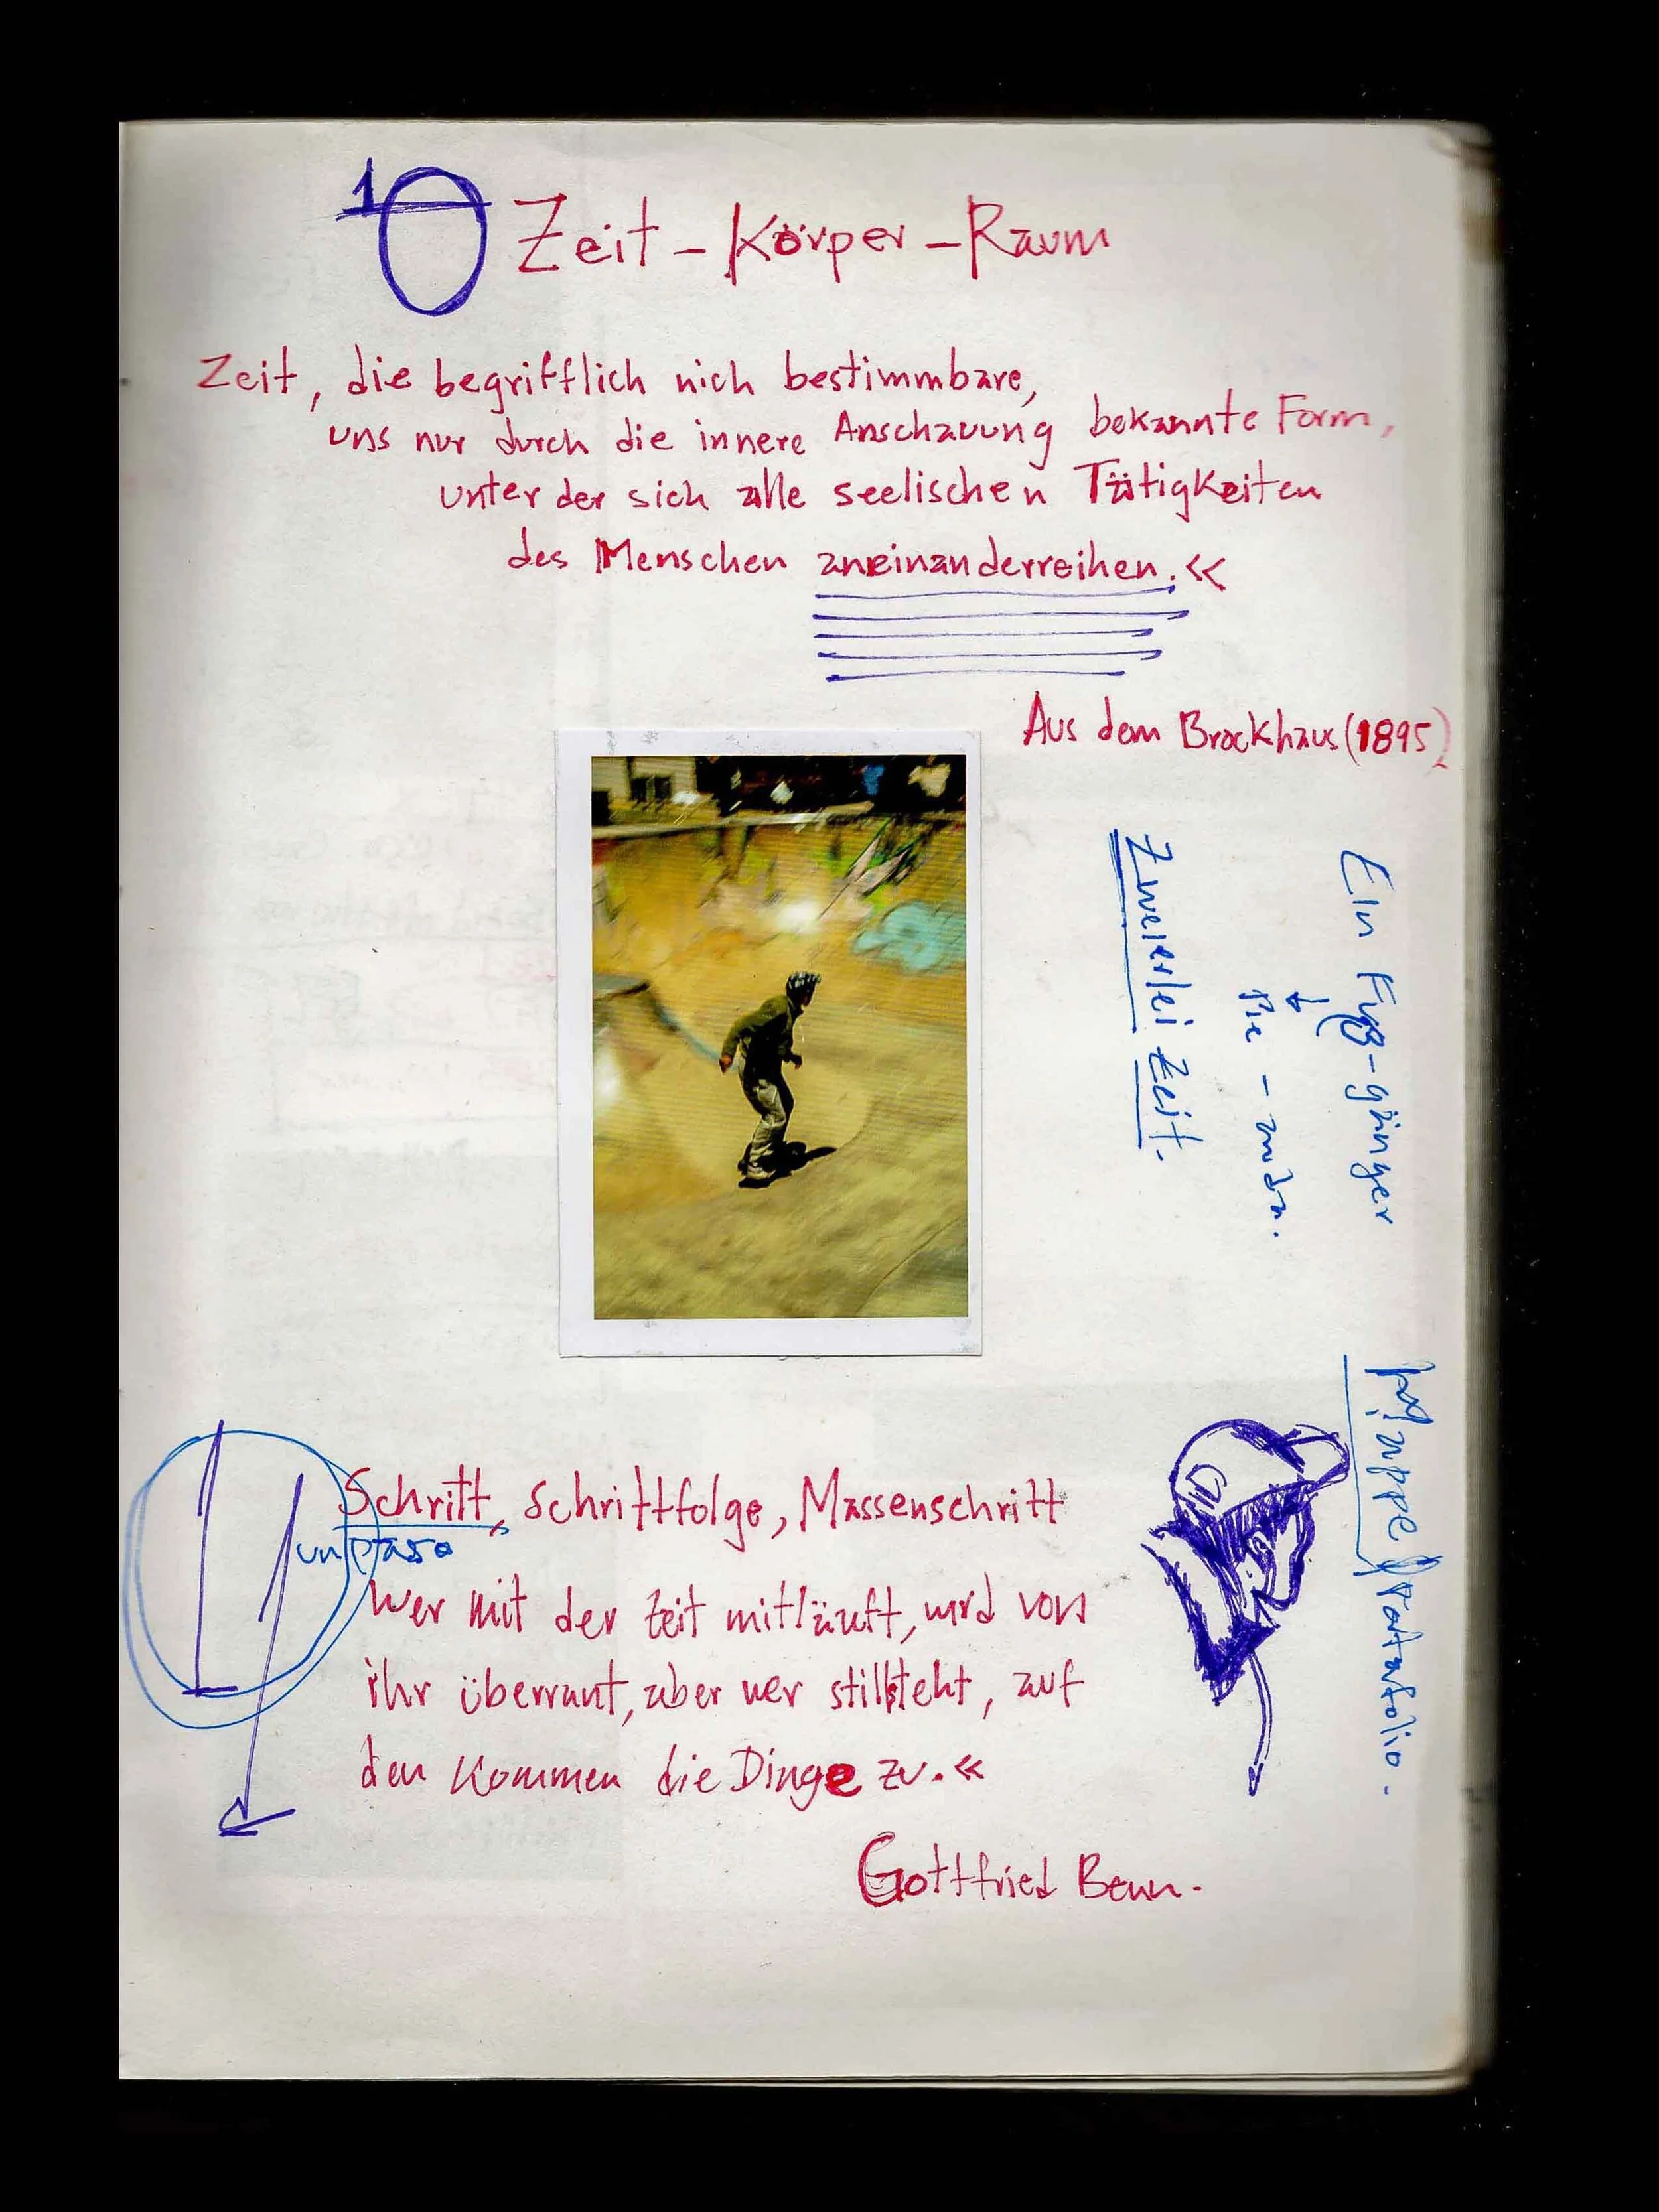 10 Zeit - Körper - Raum
Zeit, die begrifflich nich bestimmbare,
uns nur durch die innere Anschauung bekannte Form,
unter der sich alle seelischen Tätigkeiten
des Menschen aneinanderreihen.«
Aus dem Brockhaus (1895)
Ein Fuß-gänger
Pie -
Zweierlei Zeit.
Mappe Portafolio.
Schritt, Schrittfolge, Massenschritt
un paso
Wer mit der Zeit mitläuft, wird von
ihr überrunt, aber wer stillsteht, auf
den kommen die Dinge zu.«
Gottfried Benn.